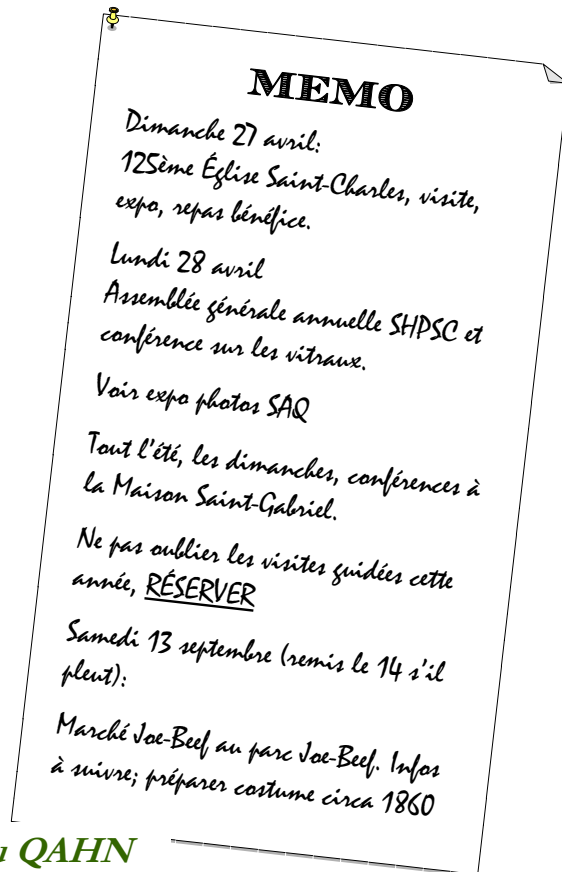 MEMO
Dimanche 27 avril:
125ème Église Saint-Charles, visite,
expo, repas bénéfice.
Lundi 28 avril
Assemblée générale annuelle SHPSC et
conférence sur les vitraux.
Voir expo photos SAQ
Tout l'été, les dimanches, conférences à
la Maison Saint-Gabriel.
Ne pas oublier les visites guidées cette
année, RÉSERVER
Samedi 13 septembre (remis le 14 s'il
pleut):
Marché Joe-Beef au parc Joe-Beef. Infos
à suivre; préparer costume circa 1860
QAHN